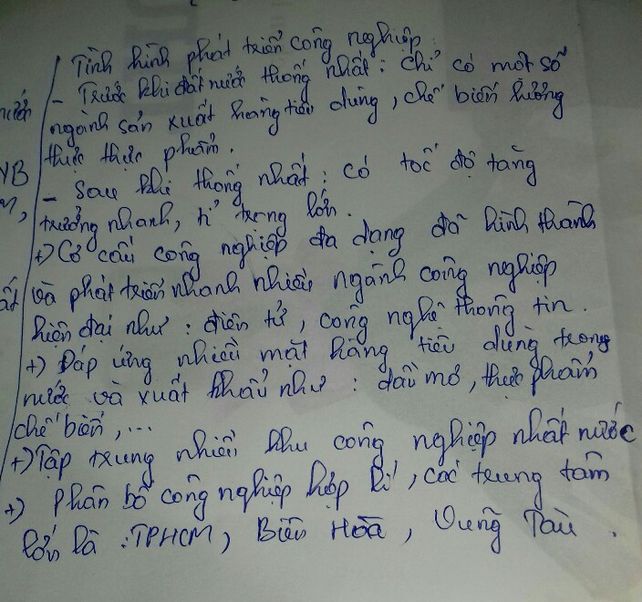 Tình hình phát triển công nghiệp:
- Trước khi đất nước thống nhất: chỉ có một số
ngành sản xuất hàng tiêu dùng, chế biến lương
thực thực phẩm.
- Sau khi thống nhất: có tốc độ tăng
trưởng nhanh, tỉ trọng lớn.
+) Cơ cấu công nghiệp đa dạng đã hình thành
và phát triển nhanh nhiều ngành công nghiệp
hiện đại như: điện tử, công nghệ thông tin.
+) Đáp ứng nhiều mặt hàng tiêu dùng trong
nước và xuất khẩu như: dầu mỏ, thực phẩm
chế biến,...
+) Tập trung nhiều khu công nghiệp nhất nước
+) phân bố công nghiệp hợp lí, các trung tâm
lớn là: TPHCM, Biên Hoà, Vũng Tàu.